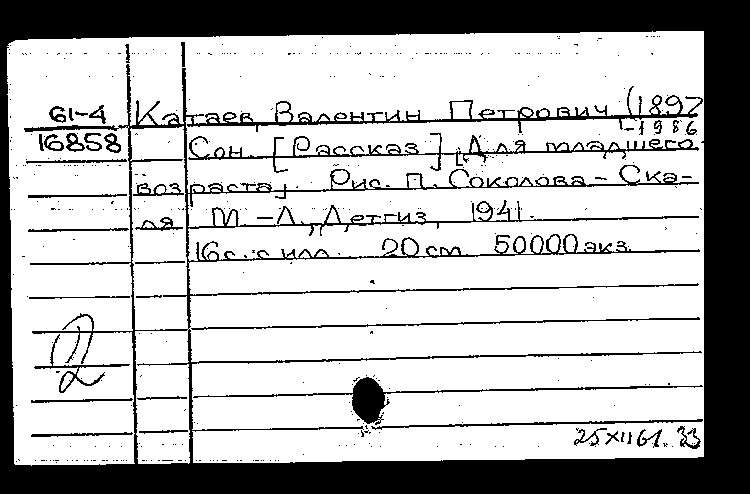 61-4 Катаев, Валентин Петрович (1897
-1986
16858 Сон. [Рассказ] [Для младшего
возраста]. Рис. П. Соколова-Ска-
ля М.-Л., Детгиз, 1941.
16с. с илл. 20см 50000экз.
2
25XII61. 33